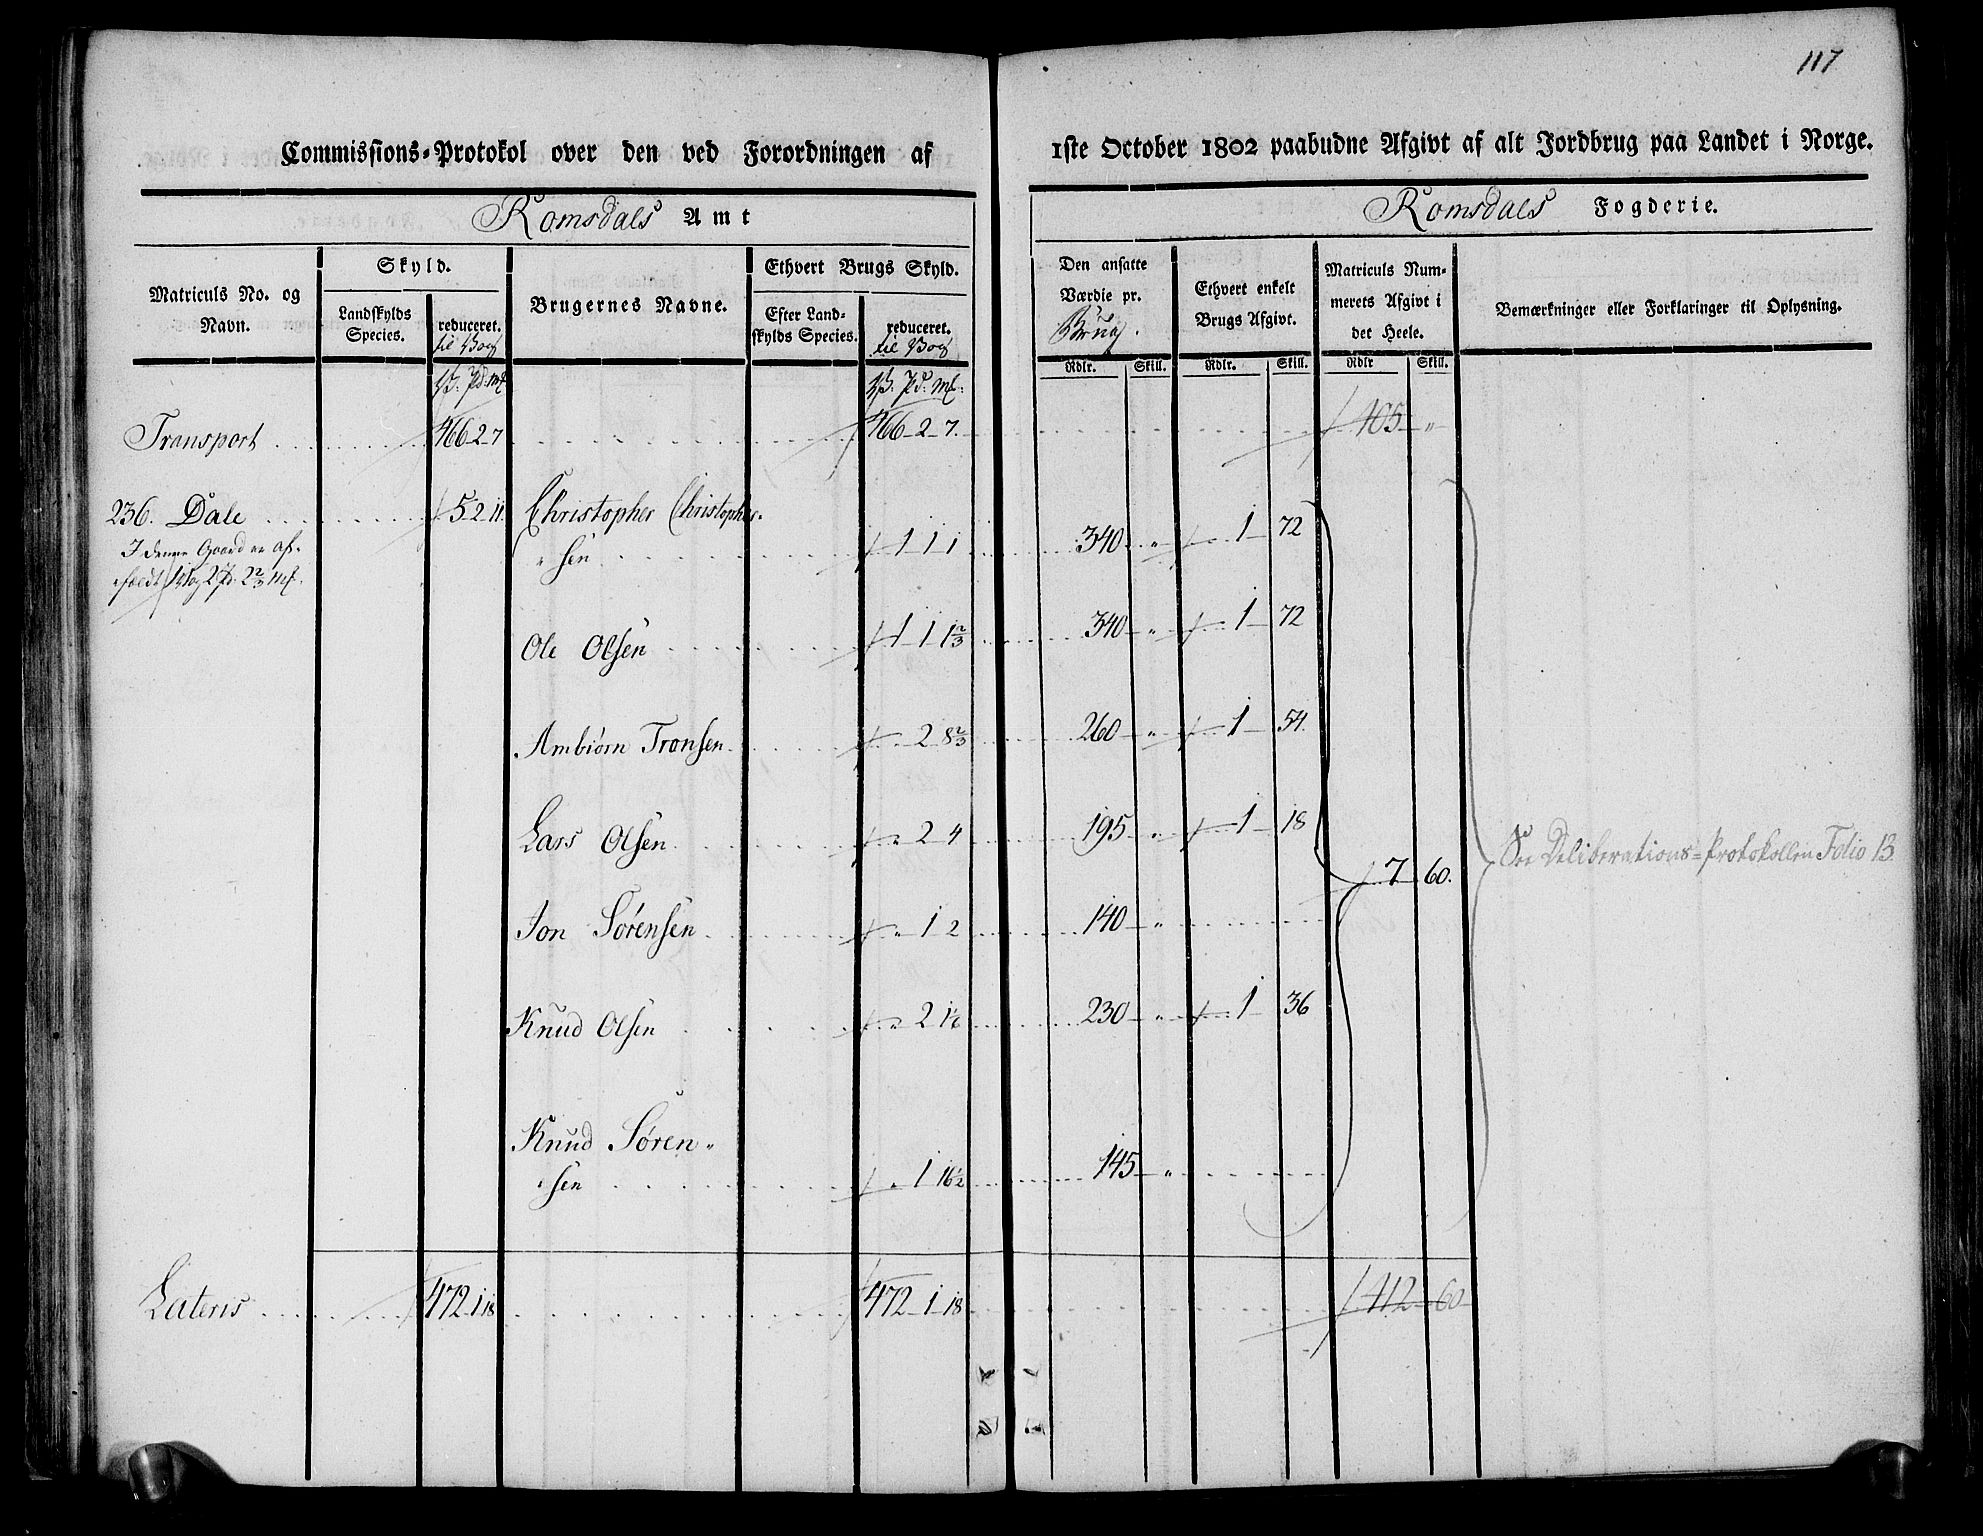 117
Commissions-Protokol over den ved Forordningen af
1ste October 1802 paabudne Afgivt af alt Jordbrug paa Landet i Norge.
Romsdals Amt
Romsdals Fogderie.
Matriculs No. og Navn.
Skyld.
Landskylds Species.
reduceret. til Vog
Brugernes Navne.
Ethvert Brugs Skyld.
Efter Landskylds Species.
reduceret. til Vog
Den ansatte Værdie pr. Brug.
Ethvert enkelt Brugs Afgivt.
Matriculs Nummerets Afgivt i det Heele.
Bemærkninger eller Forklaringer til Oplysning.
V: Pd: Mk V: Pd: Mk: Rdlr. Skill. Rdlr. Skill. Rdlr Skill.
Transport 466-2-7 466-2-7. 405 "
236. Dale 5-2-11. Christopher Christopher-
I denne Gaard er af- "sen 1 1 1 340 " 1 72
"fældt 1 Vog 2 Pd. 2 2/3 Mk.
Ole Olsen 1 1 1 2/3 340 " 1 72
Ambiørn Tronsen " 2 8 2/3 260 " 1 54.
Lars Olsen " 2 4 195 " 1 18
7 60. See Deliberations-Protokollen Folio 13
Jon Sørensen " 1 2 140 "
Knud Olsen " 2 230 " 1 36
Knud Søren-
"sen " 1 16 1/2 145 "
Lateris 472-1-18 472-1-18 412-60